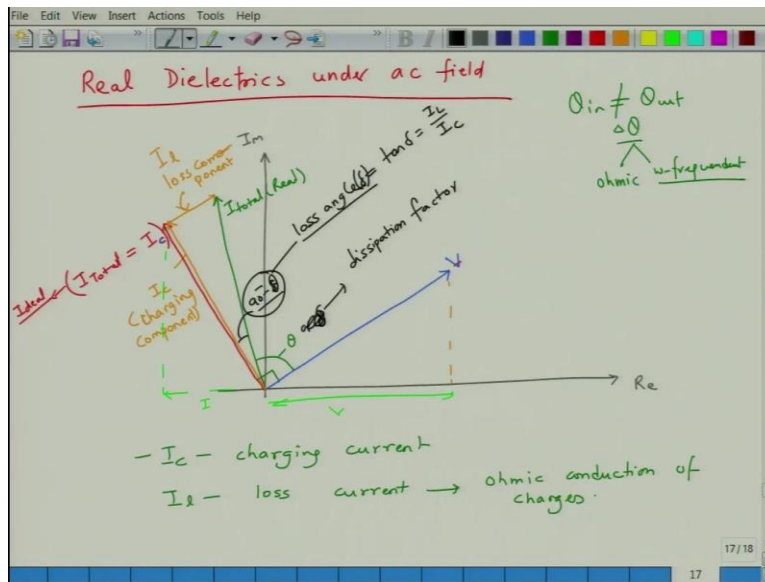 File Edit View Insert Actions Tools Help
B I
Real Dielectrics under ac field
Qin ≠ Qout
ΔQ
ohmic w-frequendent
Im
Il
loss com-
ponent
Itotal (Real)
loss angle(δ) = tanδ = IL/IC
dissipation factor
Ideal ← (ITotal = Ic)
Ic
(Charging
Component)
90-
θ
V
Re
I
V
- Ic - charging current
Il - loss current → ohmic conduction of
charges.
17/18
17